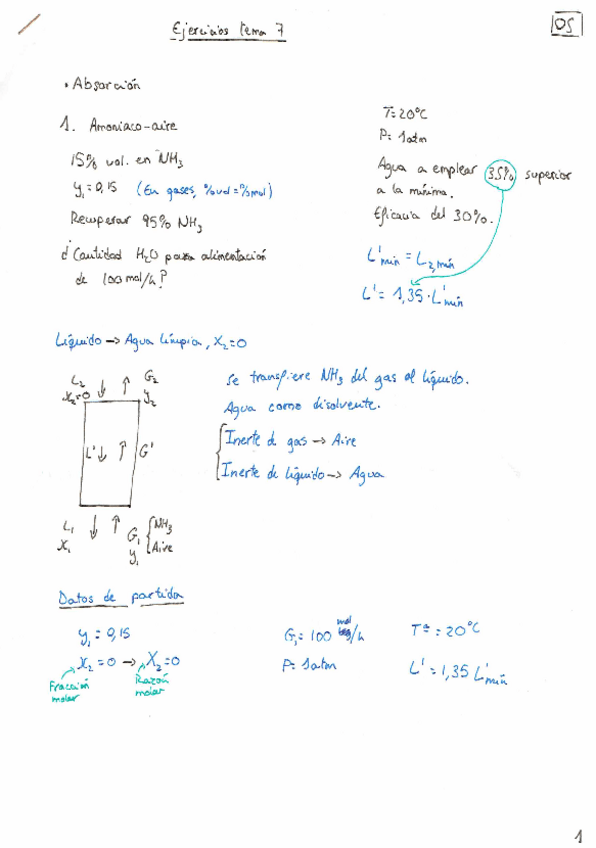 Ejercicios tema 7
OS
• Absorción
1. Amoniaco-aire
15% vol. en NH₃
y₁ = 0,15 (En gases, %vol = %mol)
Recuperar 95% NH₃
¿Cantidad H₂O para alimentación
de 100 mol/h?
T = 20°C
P = 1 atm
Agua a emplear 35% superior
a la mínima.
Eficacia del 30%.
L'mín = L₂,mín
L' = 1,35 · L'mín
Líquido → Agua limpia, X₂ = 0
L₂ G₂
x₂=0 y₂
L' G'
L₁ G₁ NH₃
x₁ y₁ Aire
Se transfiere NH₃ del gas al líquido.
Agua como disolvente.
Inerte de gas → Aire
Inerte de líquido → Agua
Datos de partida
y₁ = 0,15 G₁ = 100 mol/h Tª = 20°C
x₂ = 0 → X₂ = 0 P = 1 atm L' = 1,35 L'mín
Fracción molar
Razón molar
1